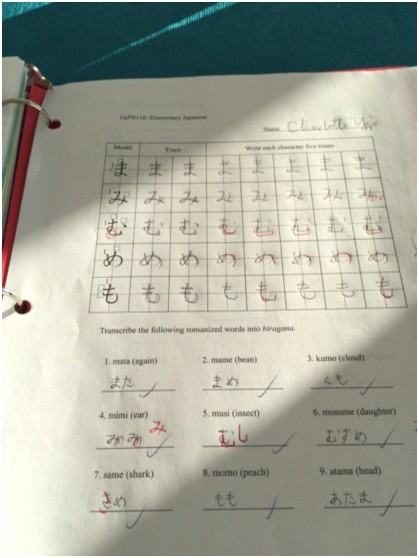 JAPN110: Elementary Japanese
Name Charlotte
Model Trace Write each character five times
ま ま ま ま ま ま ま ま
み み み み み み み み
む む む む む む む む
め め め め め め め め
も も も も も も も も
Transcribe the following romanized words into hiragana.
1. mata (again) 2. mame (bean) 3. kumo (cloud)
また まめ くも
4. mimi (ear) 5. musi (insect) 6. musume (daughter)
み
みみ むし むすめ
7. same (shark) 8. momo (peach) 9. atama (head)
さめ もも あたま